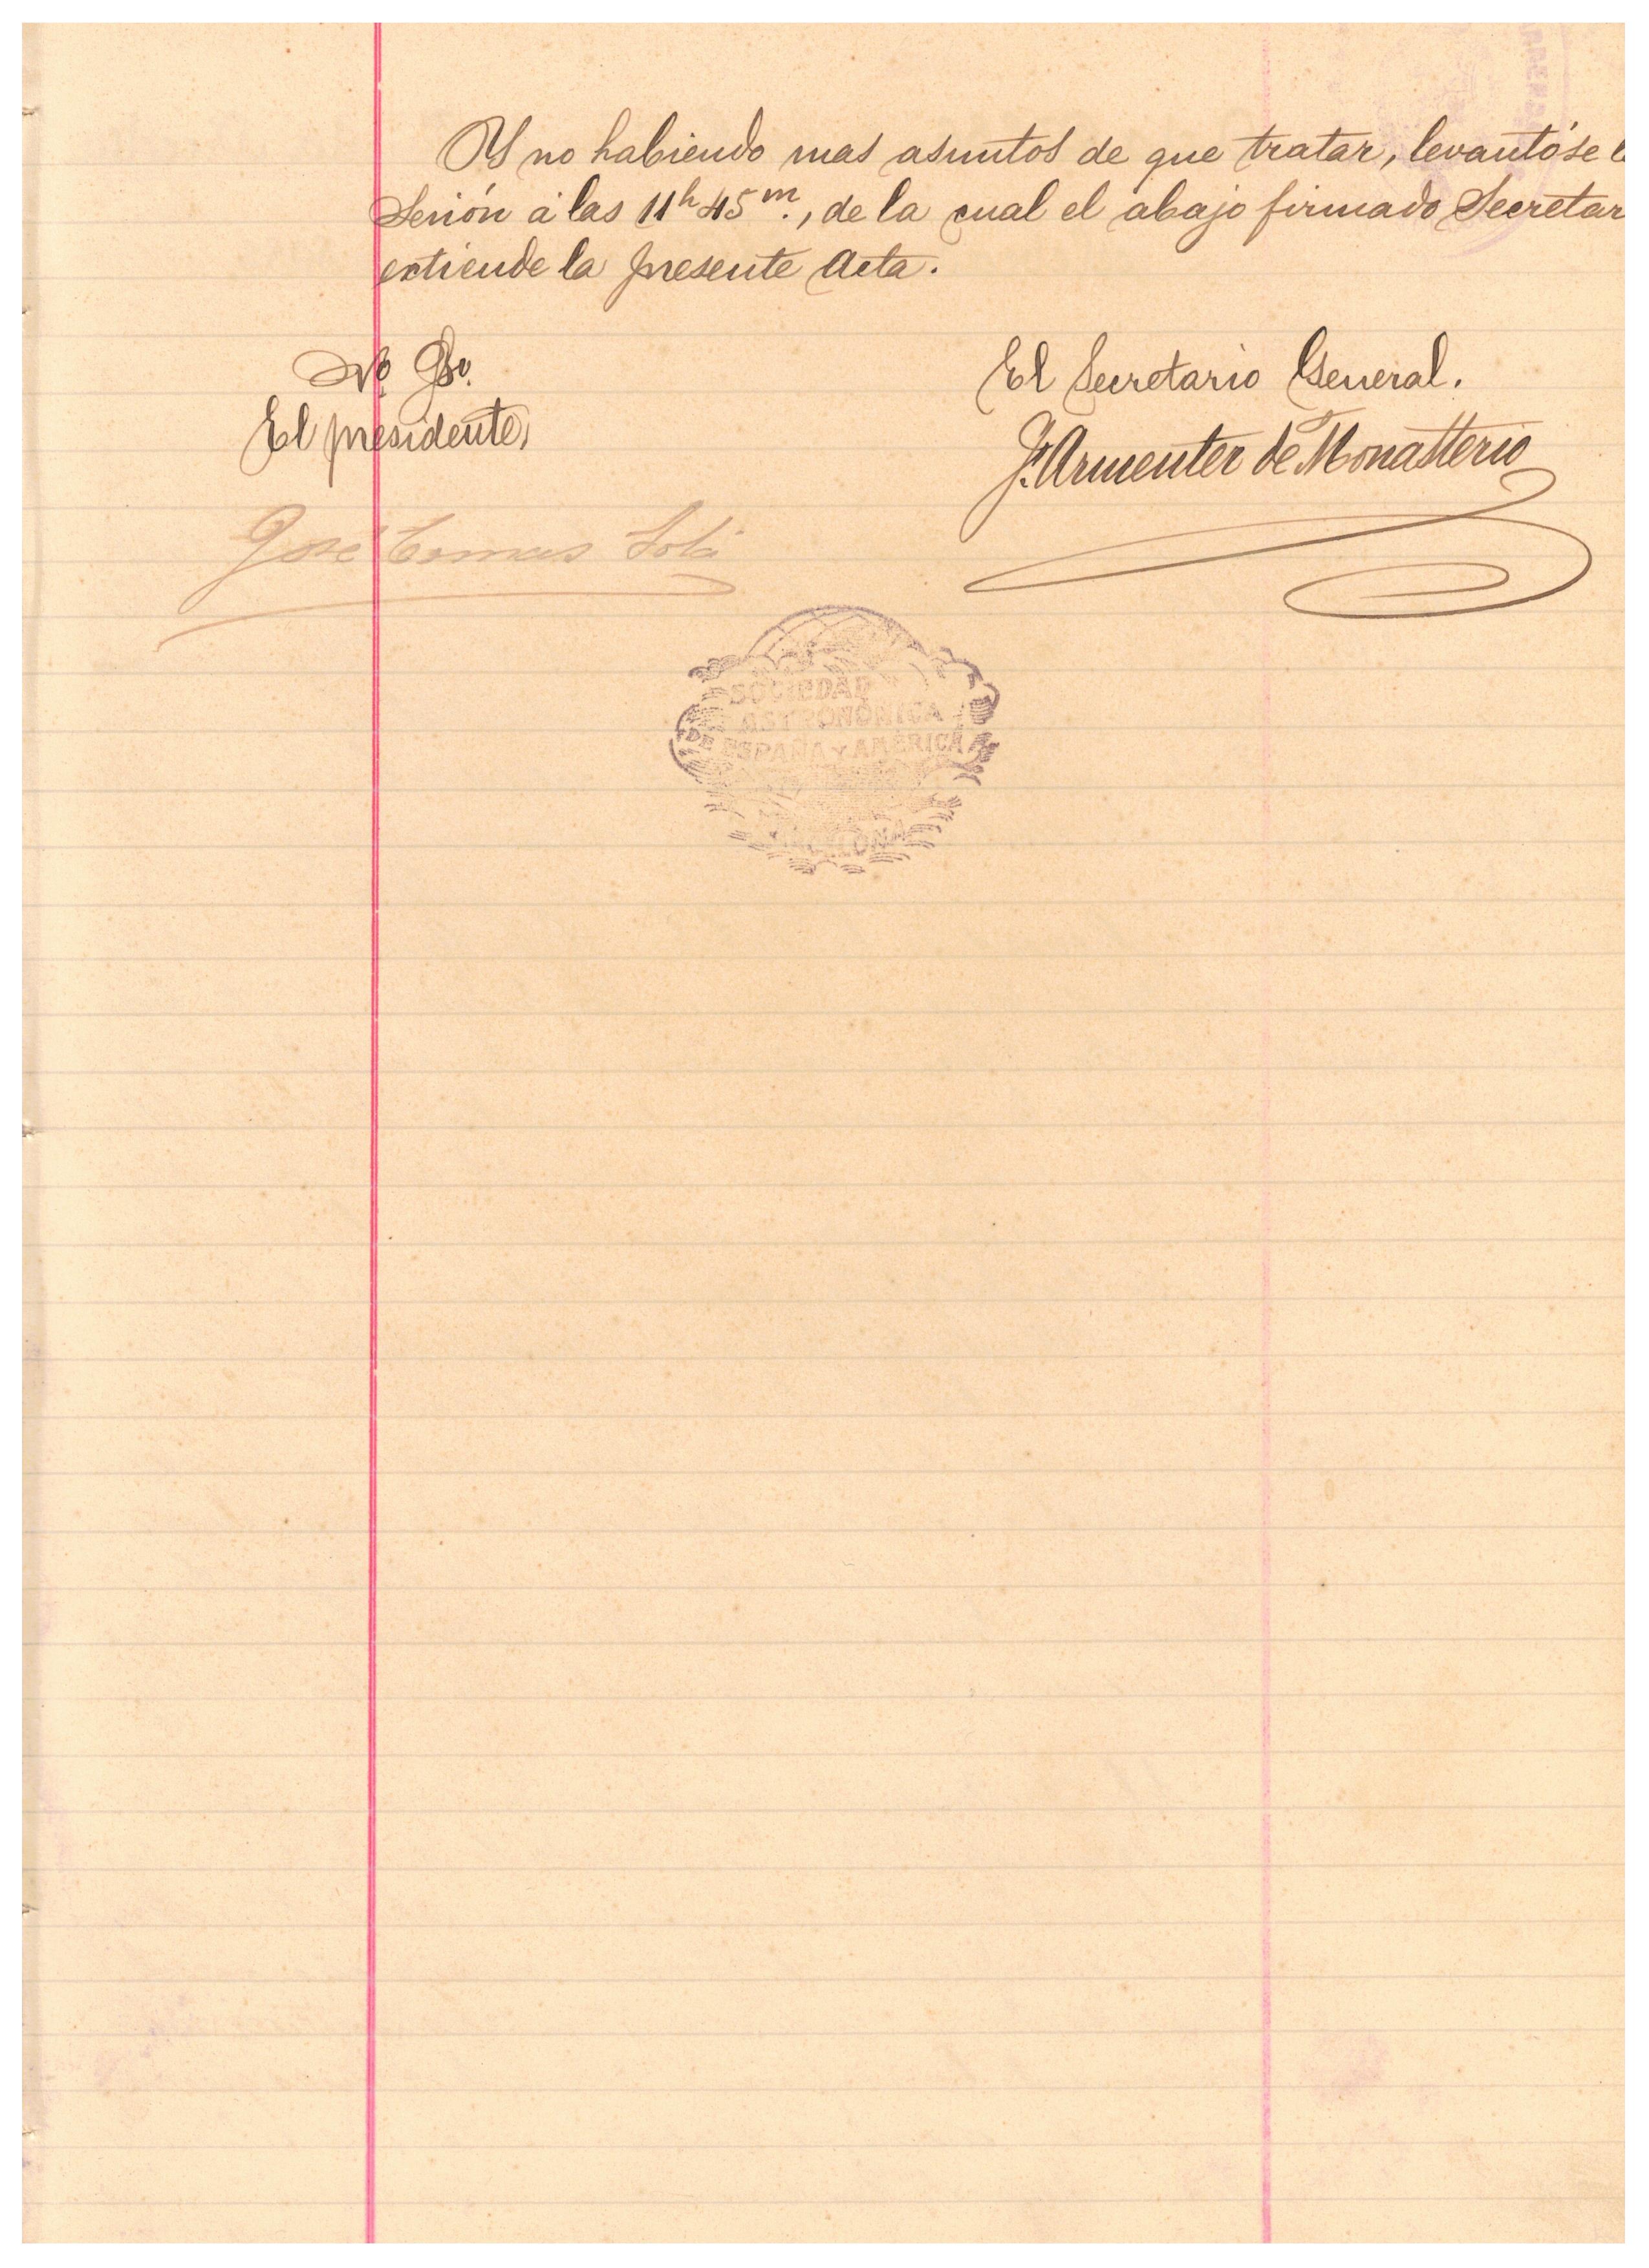 Y no habiendo mas asuntos de que tratar, levantóse l
Sesión á las 11h 45m., de la cual el abajo firmado Secretar
extiende la presente Acta.
Vº Bº.
El presidente,
El Secretario General.
J. Armenter de Monasterio
José Comas Solá
SOCIEDAD
ASTRONÓMICA
DE ESPAÑA Y AMÉRICA
BARCELONA